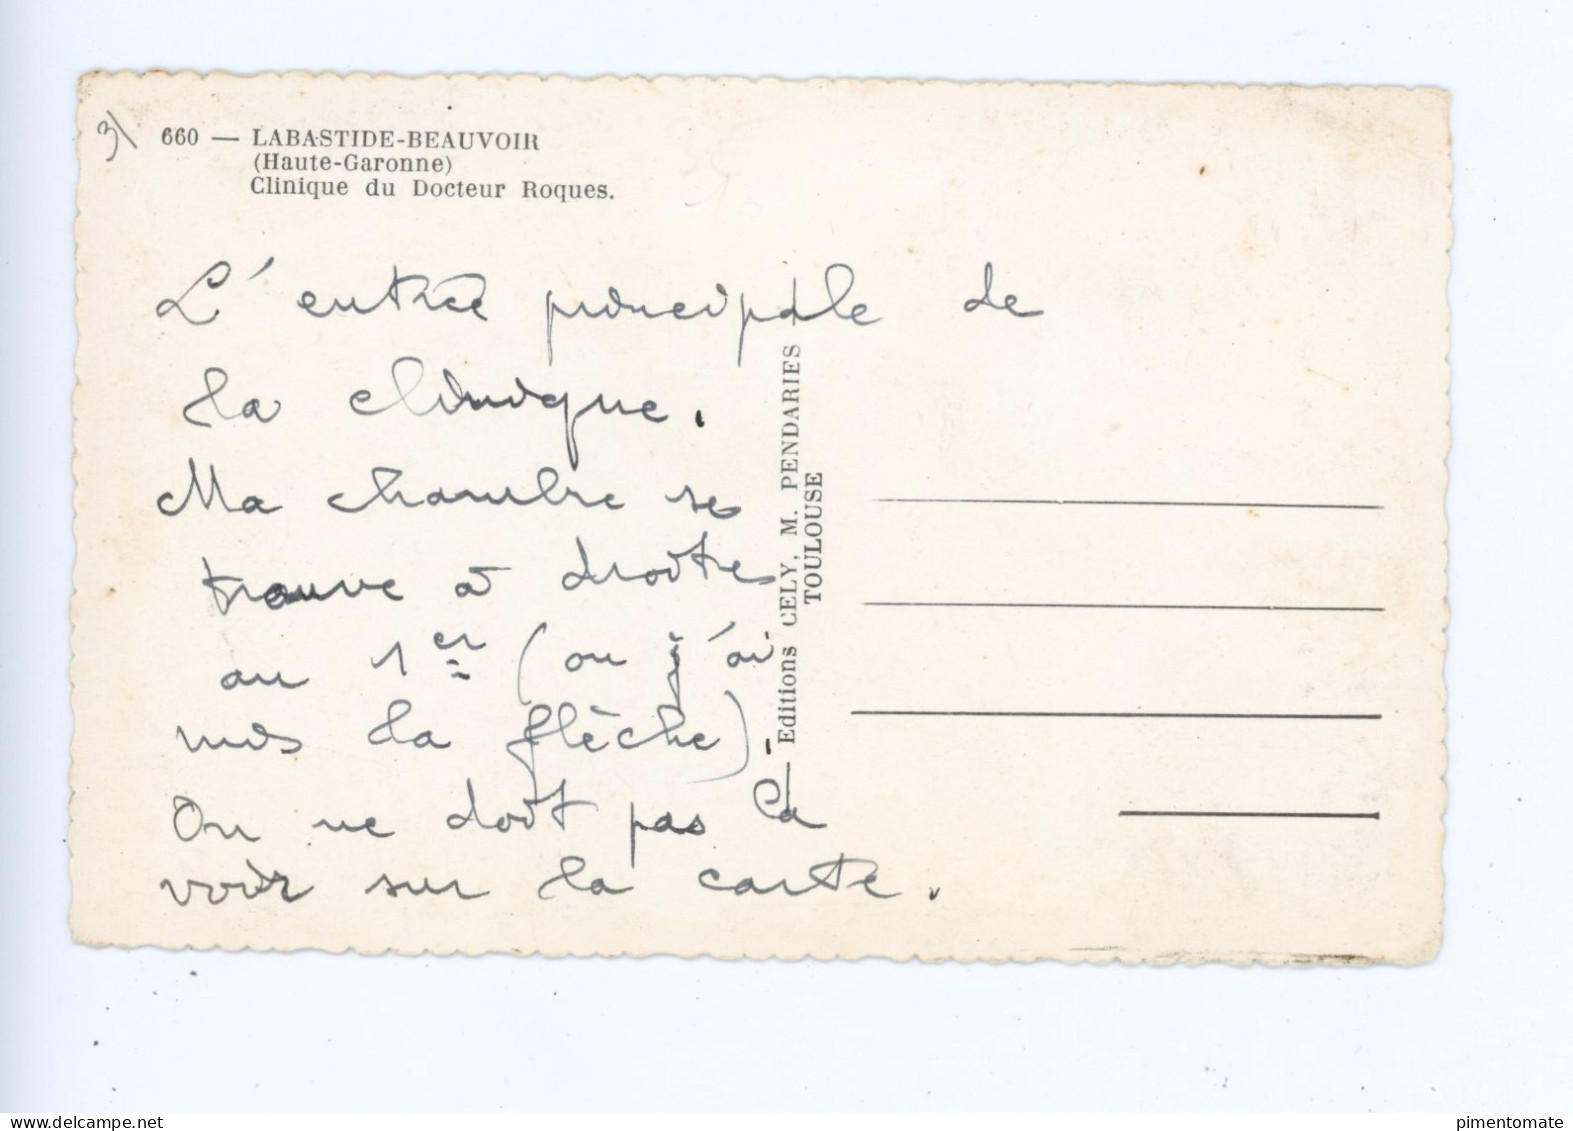 31
660 — LABASTIDE-BEAUVOIR
(Haute-Garonne)
Clinique du Docteur Roques.
L'entrée principale de
la clinique.
Ma chambre se
trouve à droite
au 1er (ou j'ai
mis la flèche).
On ne doit pas la
voir sur la carte.
Editions CELY, M. PENDARIES
TOULOUSE
www.delcampe.net
pimentomate